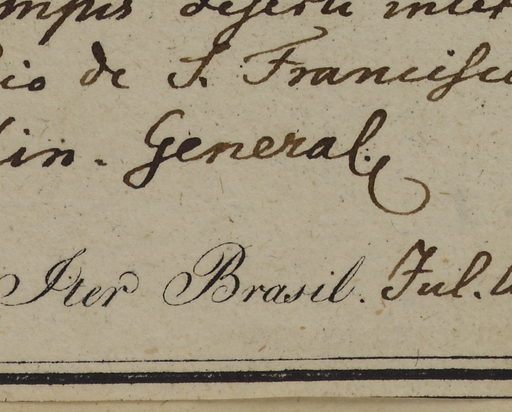 deserti inter
de S. Francisc
in. General.
Iter Brasil. Jul.